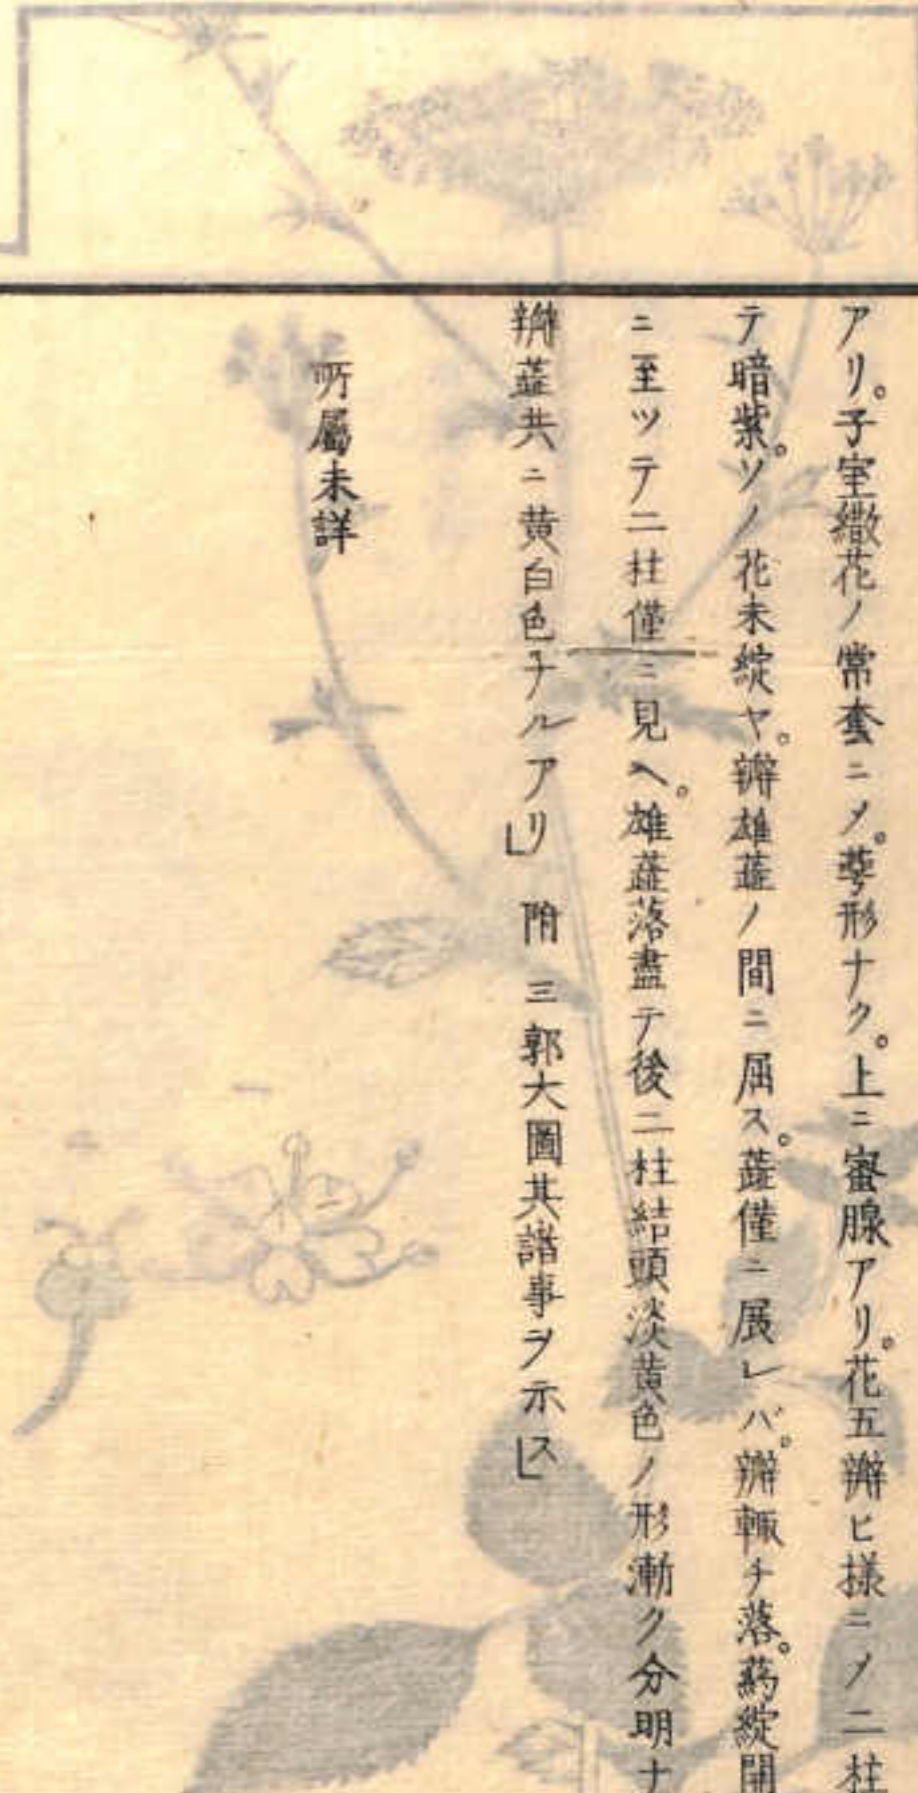 アリ。子室繖花ノ常套ニ〆。萼形ナク。上ニ蜜腺アリ。花五瓣ヒ様ニ〆二柱
テ暗紫。ソノ花未綻ヤ。瓣雄蕋ノ間ニ屈ス。蕋僅ニ展レバ。瓣輙チ落。葯綻開
ニ至ツテ二柱僅ニ見ヘ。雄蕋落盡テ後二柱結頭淡黄色ノ形漸ク分明ナ
瓣蕋共ニ黄白色ナルアリ」 附三郭大圖其諸事ヲ示ス」
所屬未詳
一
二